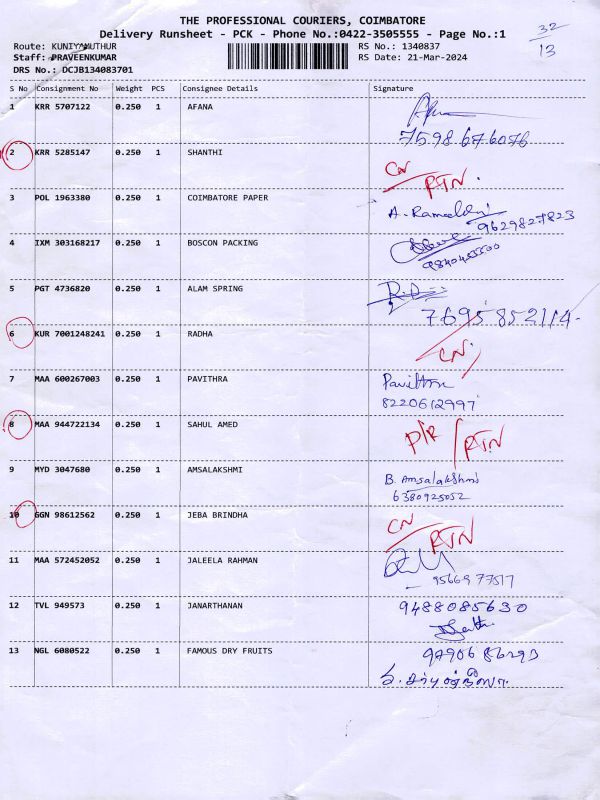 THE PROFESSIONAL COURIERS, COIMBATORE
Delivery Runsheet - PCK - Phone No.:0422-3505555 - Page No.:1
32
13
Route: KUNIYAMUTHUR
RS No.: 1340837
Staff: PRAVEENKUMAR
RS Date: 21-Mar-2024
DRS No.: DCJB134083701
S No Consignment No Weight PCS Consignee Details Signature
1 KRR 5707122 0.250 1 AFANA
7598676076
2 KRR 5285147 0.250 1 SHANTHI
CN / RTN.
3 POL 1963380 0.250 1 COIMBATORE PAPER
9629827823
4 IXM 303168217 0.250 1 BOSCON PACKING
5 PGT 4736820 0.250 1 ALAM SPRING
7695852114.
6 KUR 7001248241 0.250 1 RADHA
CN
7 MAA 600267003 0.250 1 PAVITHRA
Pavithra
8220612997
8 MAA 944722134 0.250 1 SAHUL AMED
RTN
9 MYD 3047680 0.250 1 AMSALAKSHMI
B. Amsalakshmi
6380925052
10 GGN 98612562 0.250 1 JEBA BRINDHA
CN RTN
11 MAA 572452052 0.250 1 JALEELA RAHMAN
9566977517
12 TVL 949573 0.250 1 JANARTHANAN
9488085630
13 NGL 6080522 0.250 1 FAMOUS DRY FRUITS
9790686293